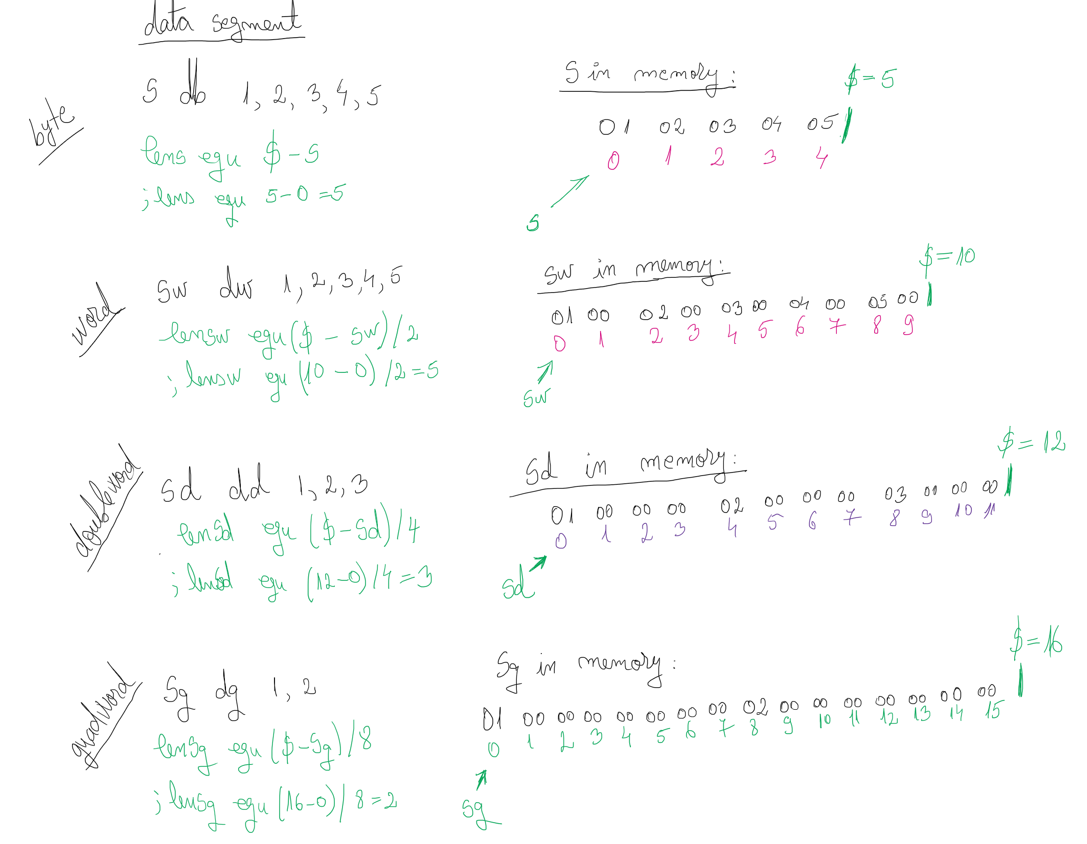 data segment
byte
s db 1, 2, 3, 4, 5
lens equ $-s
;lens equ 5-0=5
S in memory:
$=5
01 02 03 04 05
0 1 2 3 4
s
word
sw dw 1, 2, 3, 4, 5
lensw equ ($ - sw)/2
; lensw equ (10 - 0)/2=5
Sw in memory:
$=10
01 00 02 00 03 00 04 00 05 00
0 1 2 3 4 5 6 7 8 9
sw
doubleword
sd dd 1, 2, 3
lensd equ ($-sd)/4
; lensd equ (12-0)/4=3
Sd in memory:
$=12
01 00 00 00 02 00 00 00 03 00 00 00
0 1 2 3 4 5 6 7 8 9 10 11
sd
quadword
Sq dq 1, 2
lensq equ ($-Sq)/8
; lensq equ (16-0)/8=2
Sq in memory:
$=16
01 00 00 00 00 00 00 00 02 00 00 00 00 00 00 00
0 1 2 3 4 5 6 7 8 9 10 11 12 13 14 15
sq